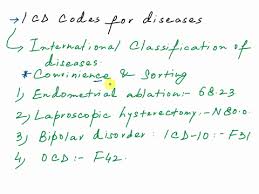 → ICD Codes for diseases
→ International Classification of
diseases.
* Convinience & Sorting
1) Endometrial ablation:- 68.23
2) Laproscopic hysterectomy:- N80.0
3) Bipolar disorder: ICD-10:- F31
4) OCD:- F42.